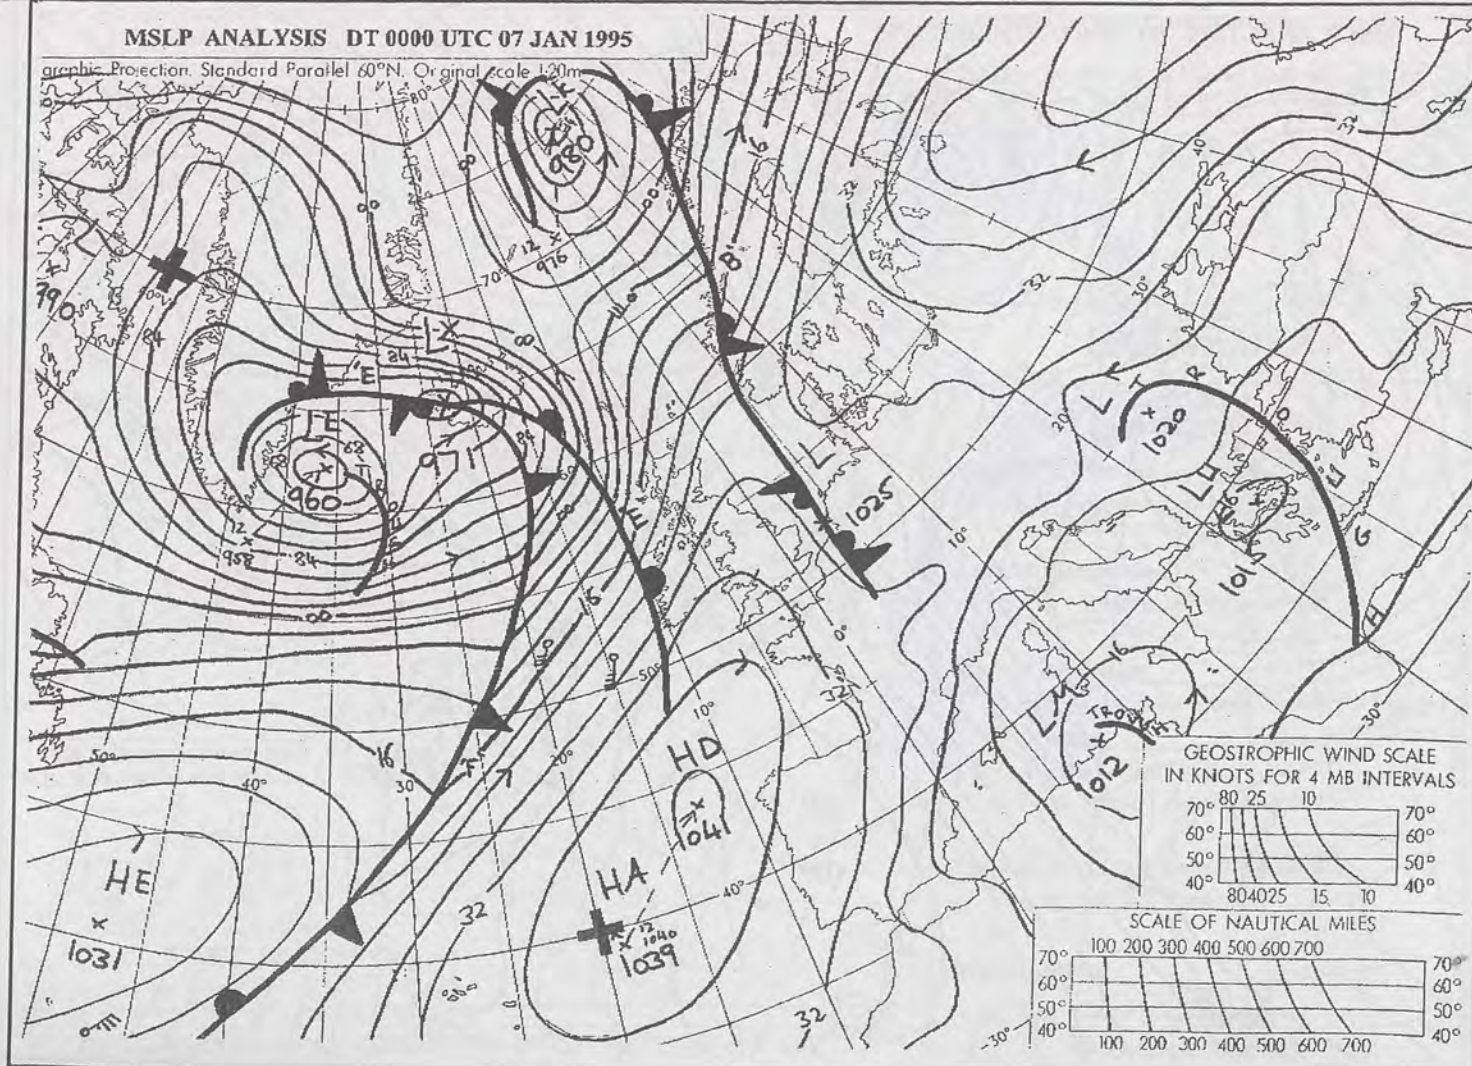 MSLP ANALYSIS DT 0000 UTC 07 JAN 1995
graphic Projection. Standard Parallel 60°N. Original scale 1:20m
80°
980
12
976
70°
00
16
32
40
990
84
L-X
84
'E
971
84
960
68
12
958
84
00
00
16
'E
B'
52
30°
20°
L T R O U G H
1020
1016
1013
L-L
1025
10°
0°
50°
10°
20°
30
40°
50°
16
HE
1031
32
HD
1041
HA
40°
12
1040
1039
32
32
30°
LM
16
TROUGH
1012
30°
GEOSTROPHIC WIND SCALE
IN KNOTS FOR 4 MB INTERVALS
80 25 10
70° 70°
60° 60°
50° 50°
40° 40°
80 40 25 15 10
SCALE OF NAUTICAL MILES
100 200 300 400 500 600 700
70° 70°
60° 60°
50° 50°
40° 40°
100 200 300 400 500 600 700